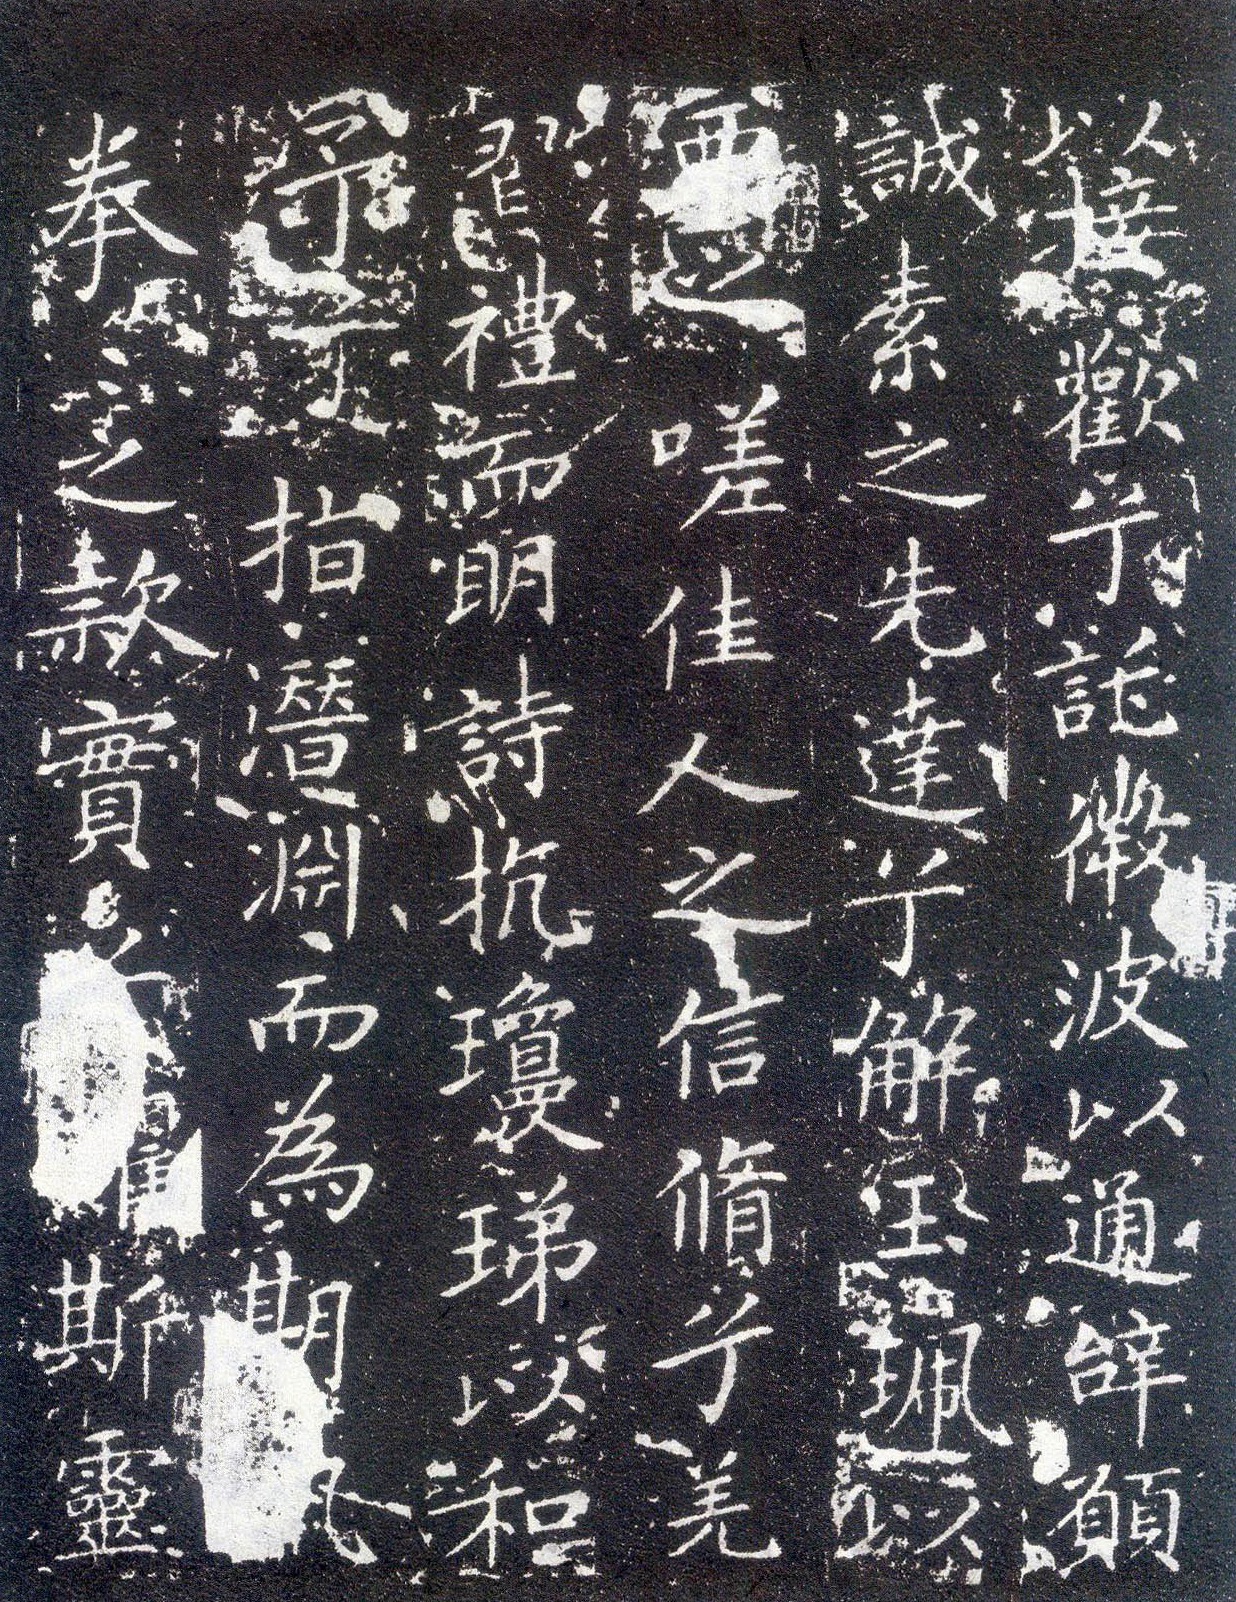 以接歡兮託微波以通辝願
誠素之先達兮解玉珮以
要之嗟佳人之信脩兮羌
習禮而明詩抗瓊珶以和
予兮指潛淵而為期執
拳々之款實兮懼斯靈